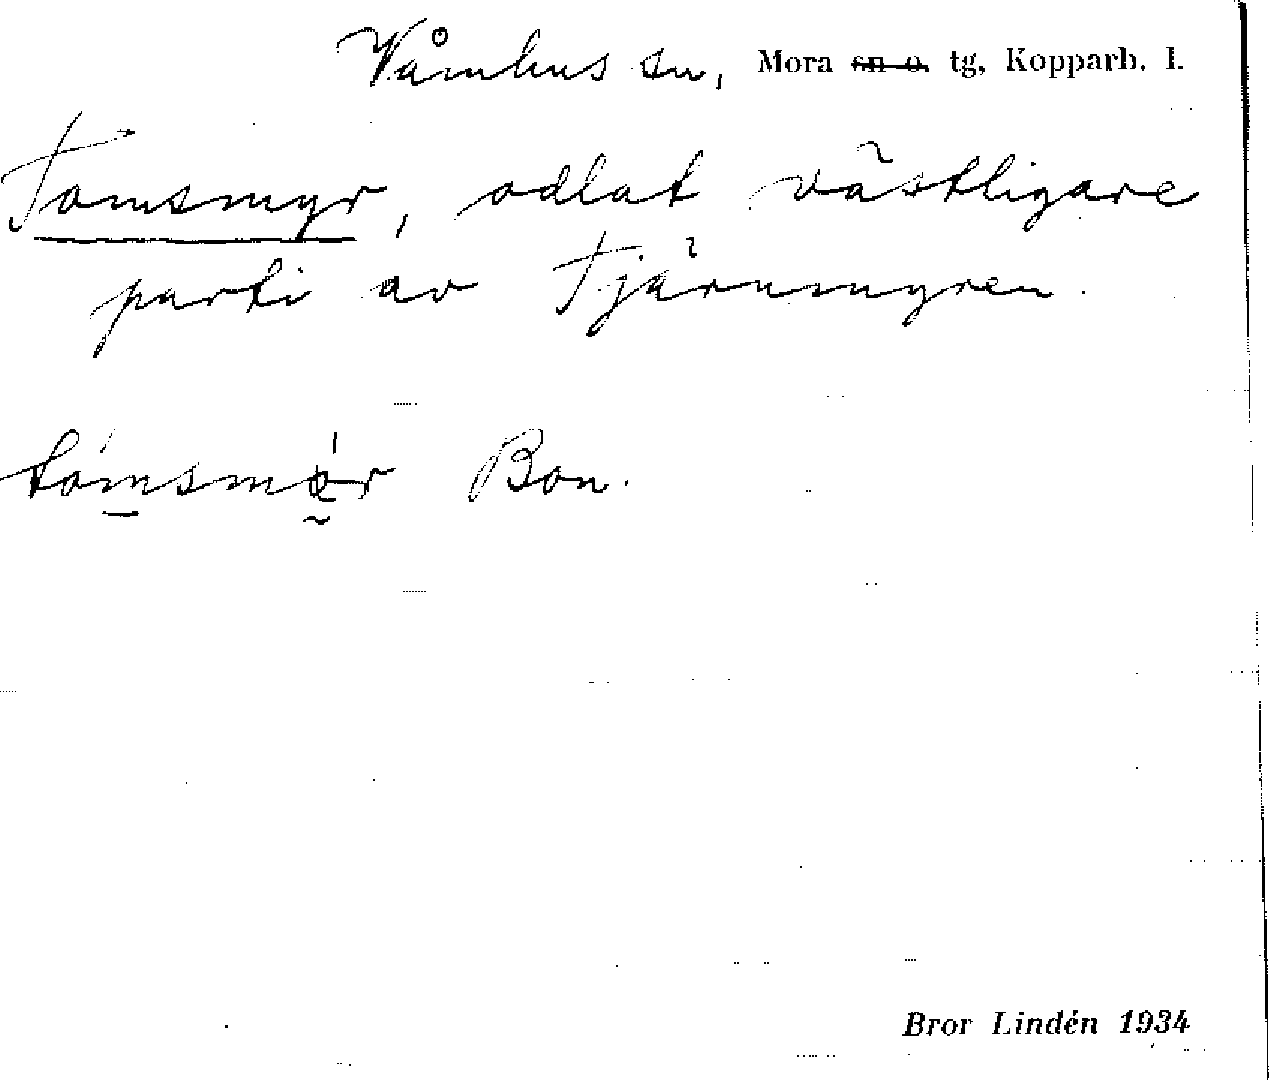 Våmhus sn, Mora sn o. tg, Kopparb. l.
Tomsmyr, odlat västligare
parti av Tjärnmyren.
tómsmör Bon.
Bror Lindén 1934